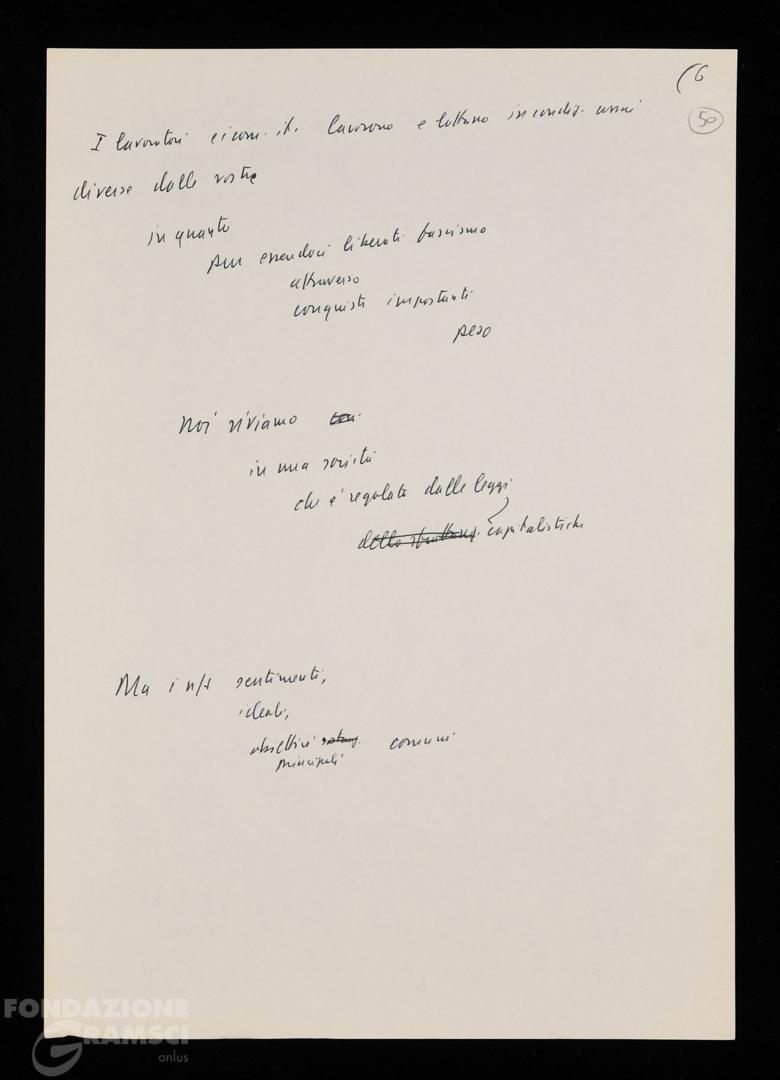 (6
50
I lavoratori e i com. it. lavorano e lottano in condiz. assai
diverse dalle vostre
in quanto
pur essendoci liberati fascismo
attraverso
conquiste importanti
peso
Noi viviamo
in una società
che è regolata dalle leggi
dello sfruttam. capitalistiche
Ma i n/s sentimenti,
ideali,
obiettivi comuni
principali
FONDAZIONE
GRAMSCI
onlus